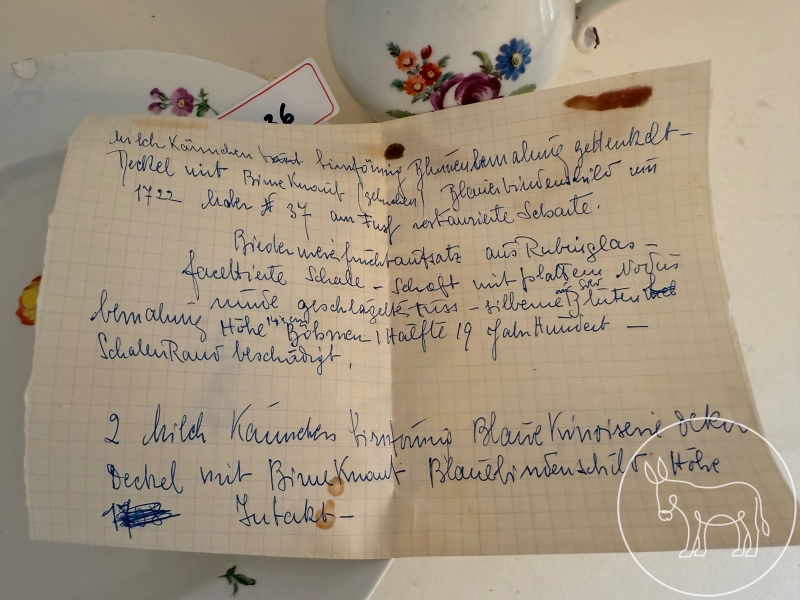 36
Milch Kännchen birnförmig Blumenbemalung gehenkelt -
Deckel mit Birne Knauf Blauerbindenschild um
1722 Maler # 37 am Fuß restaurierte Scharte.
Biedermeierfruchtaufsatz aus Rubinglas -
facettierte Schale - Schaft mit plattem Nodus
runde geschlägelter Fuss - silberne Blüten
bemalung Höhe Böhmen 1 Hälfte 19 JahrHundert -
SchalenRand beschädigt.
2 Milch Kännchen birnförmig Blaue Kinoiserie Dekor
Deckel mit Birne Knauf Blauebindenschild Höhe
Intakt -